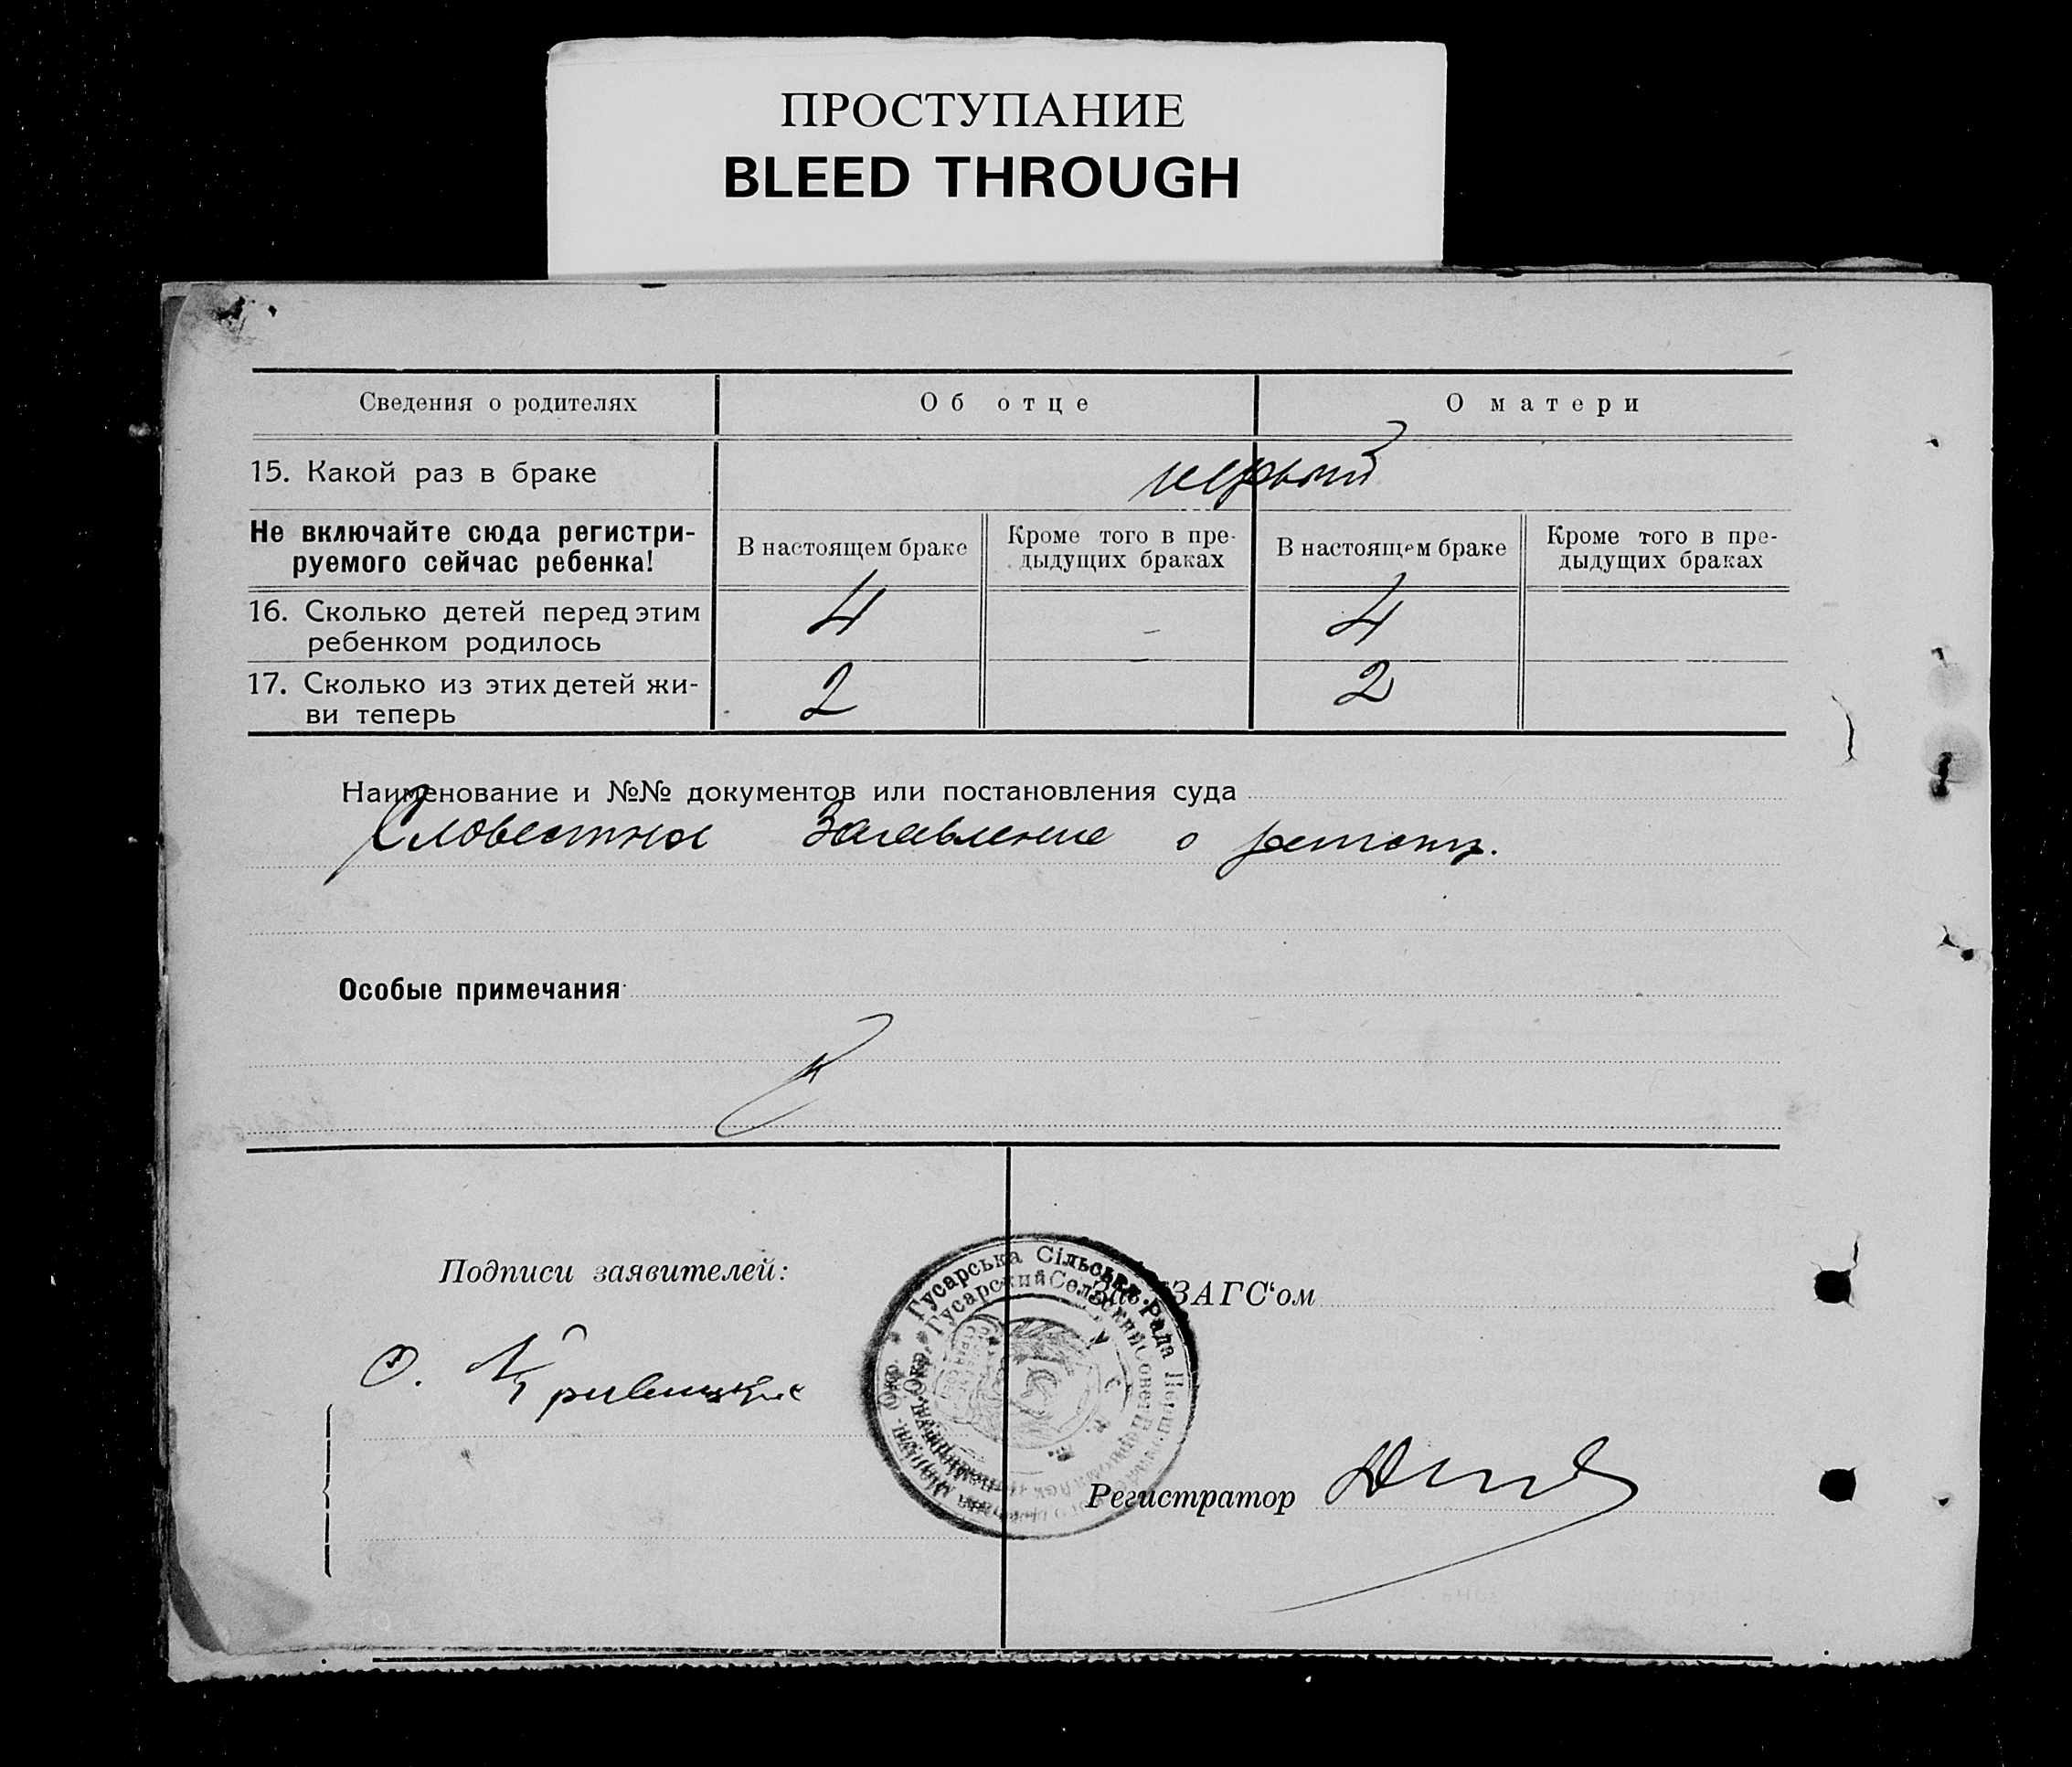 ПРОСТУПАНИЕ
BLEED THROUGH
Сведения о родителях Об отце О матери
15. Какой раз в браке первый
Не включайте сюда регистри-
руемого сейчас ребенка!
В настоящем браке Кроме того в пре-
дыдущих браках
В настоящем браке Кроме того в пре-
дыдущих браках
16. Сколько детей перед этим
ребенком родилось 4 - 4
17. Сколько из этих детей жи-
ви теперь 2 2
Наименование и №№ документов или постановления суда
Словестна Заявление о
Особые примечания
Подписи заявителей:
ЗАГС‘ом
О.
Гусарська Сільська Рада
Гусарский Сельский Совет
Регистратор